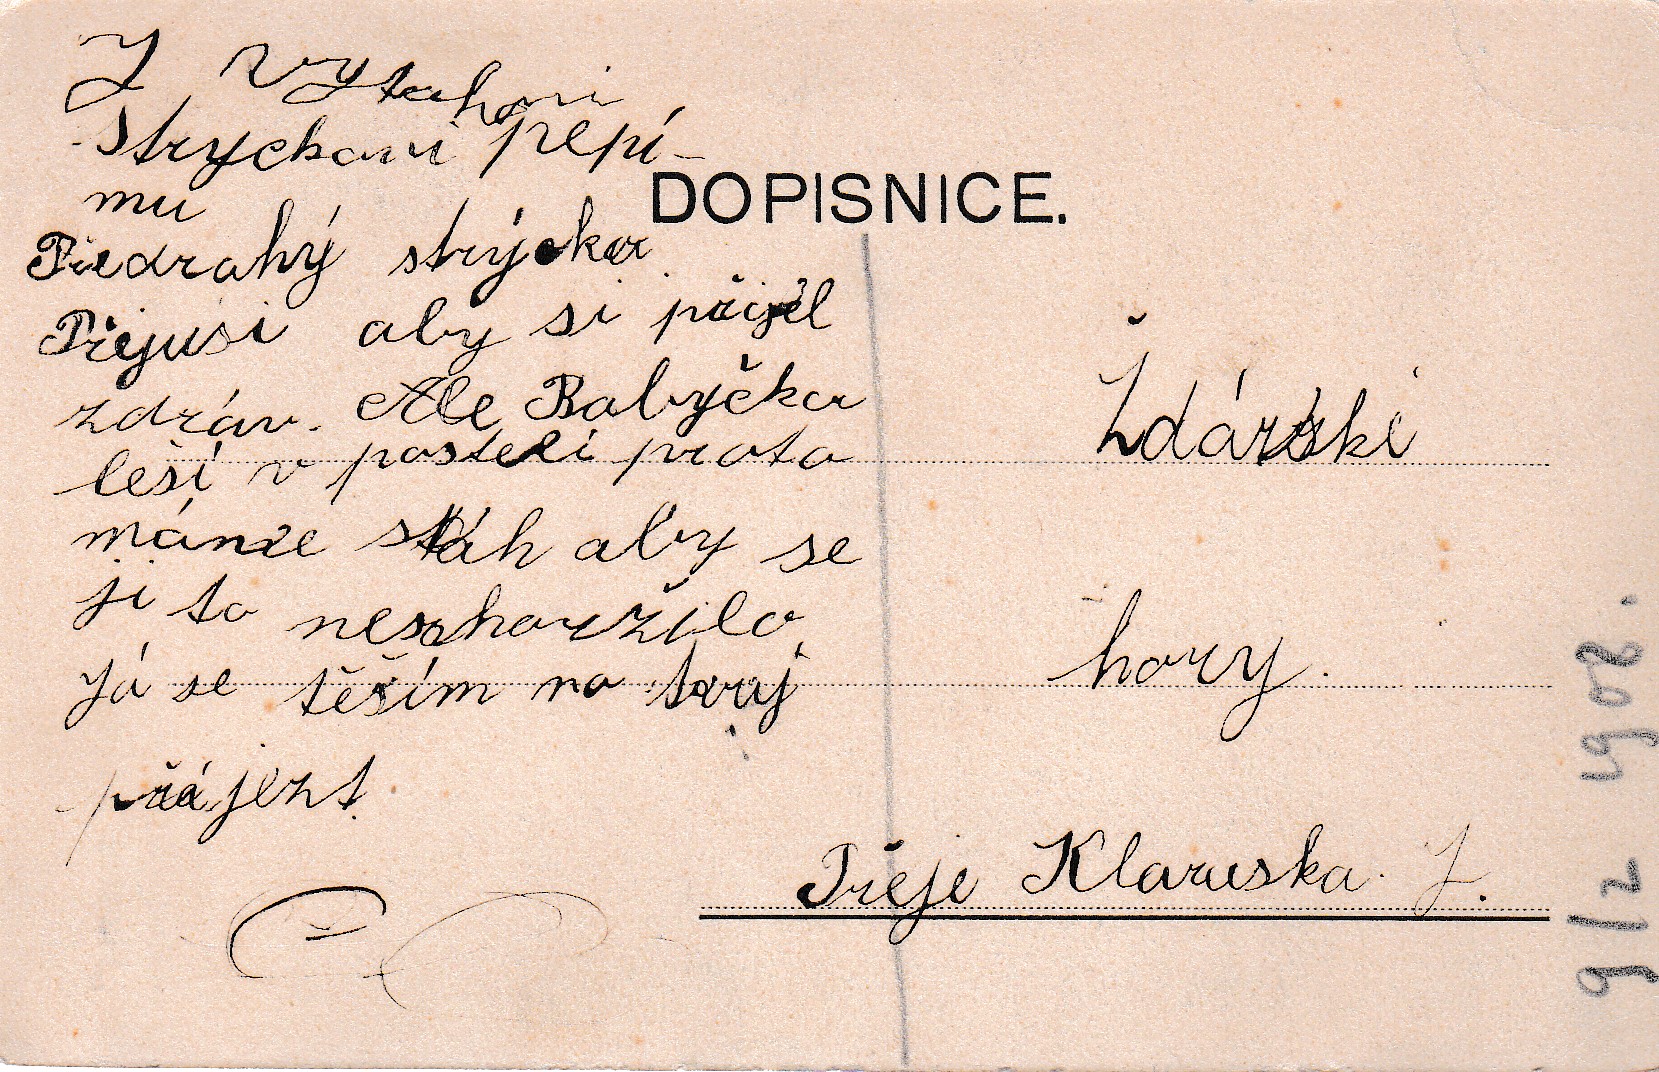 J Vytahovi
Stryckovi pepí-
mu
Předrahý strýcka
Přejusi aby si přijel
zdráv. Ale Babyčka
leší v posteli proto
máme stráh aby se
ji to neshoržilo
Já se těším na tvuj
přájezt.
DOPISNICE.
Ždárski
hory.
Přeje Klaruska. J.
9/12 1908.